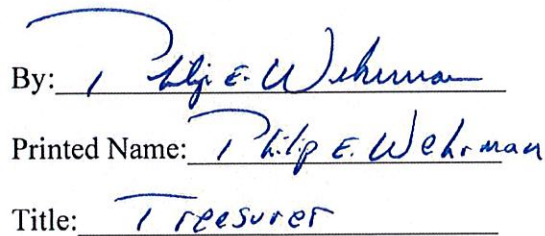 By: Philip E. Wehrman
Printed Name: Philip E. Wehrman
Title: Treasurer